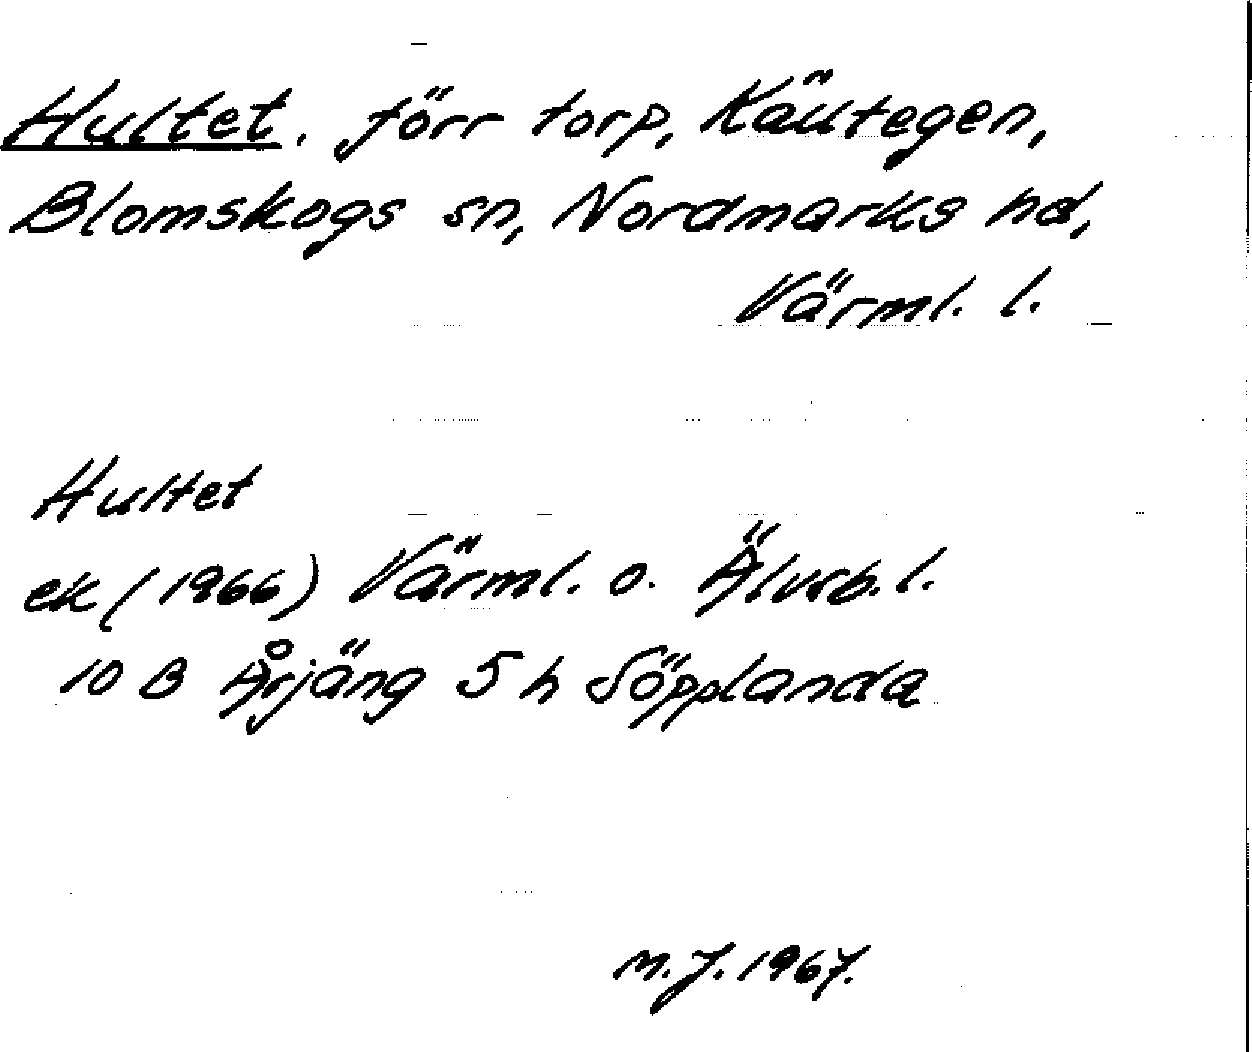 Hultet, förr torp, Källtegen,
Blomskogs sn, Nordmarks hd,
Värml. l.
Hultet
ek (1966) Värml. o. Älvsb. l.
10 B Årjäng 5 h Söpplanda
M. J. 1967.